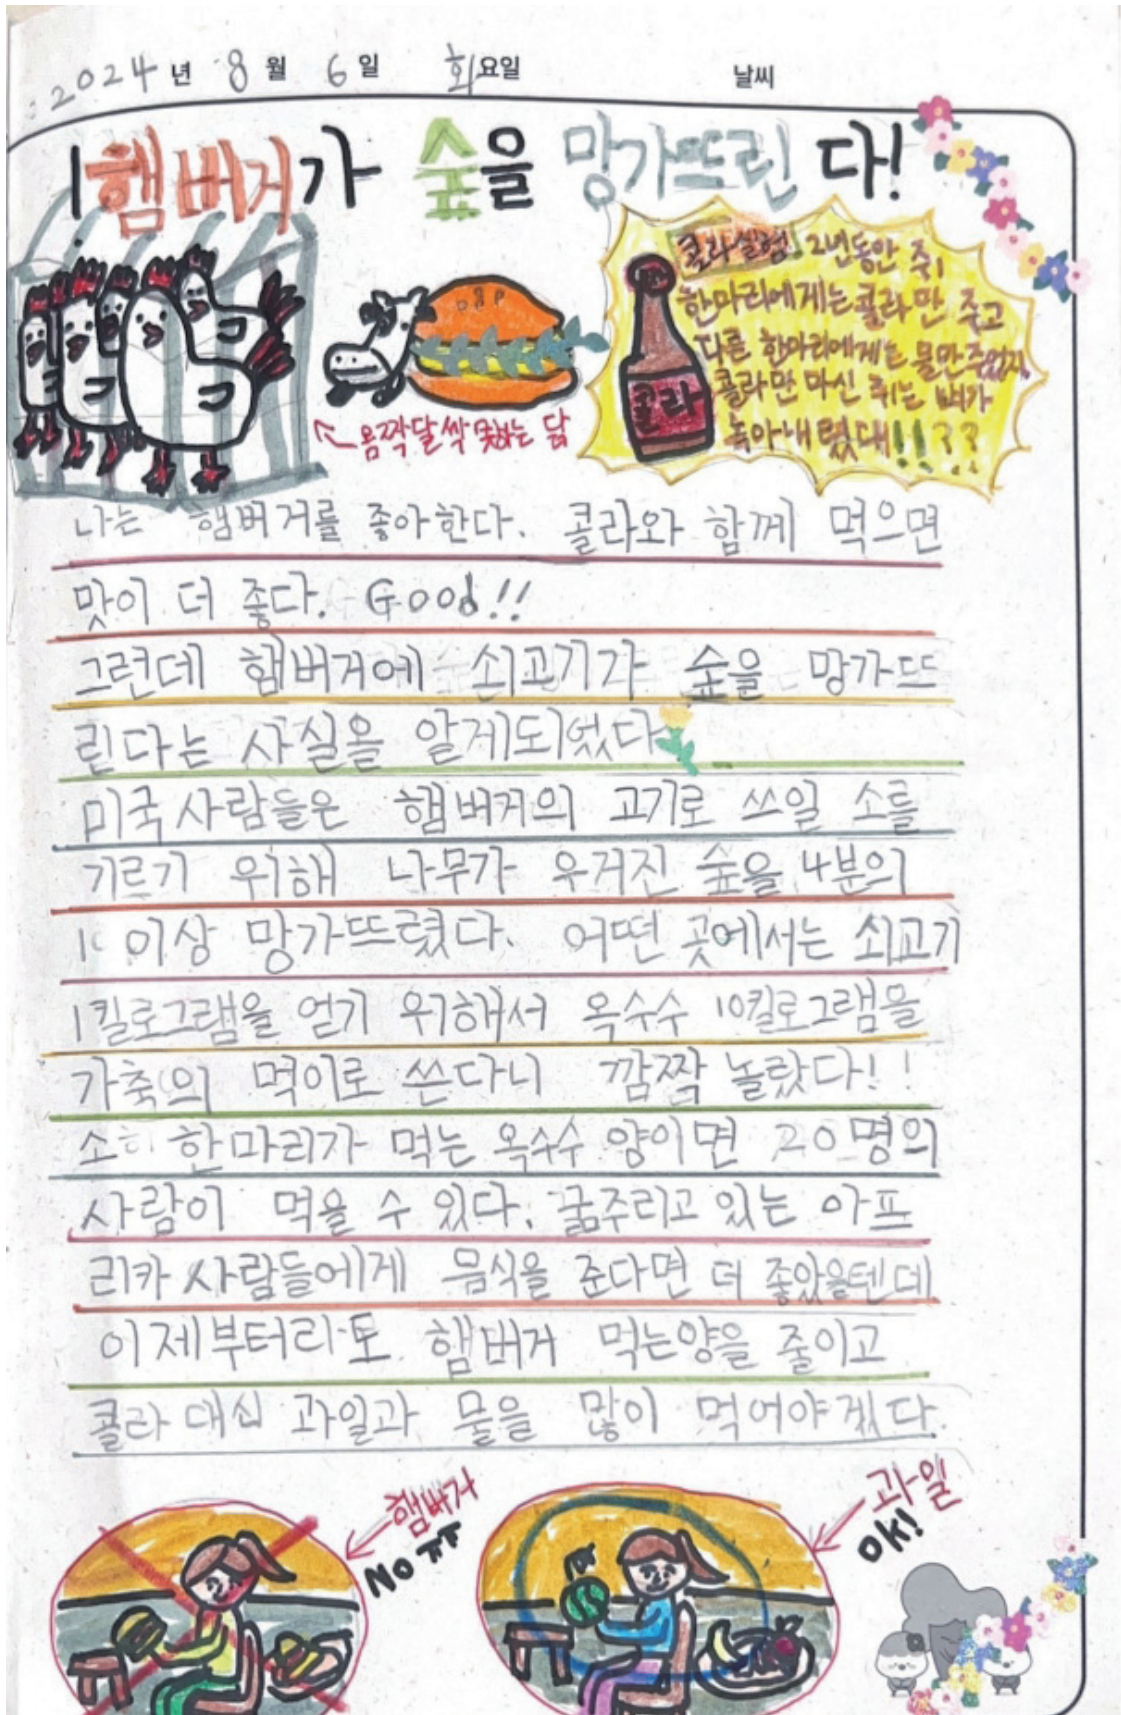 2024년 8월 6일 화요일 날씨
햄버거가 숲을 망가뜨린다!
콜라실험! 2년동안 쥐
한마리에게는 콜라만 주고
다른 한마리에게는 물만 주었지
콜라만 마신 쥐는 뼈가
녹아내렸대!!??
콜라
옴짝달싹 못하는 닭
나는 햄버거를 좋아한다. 콜라와 함께 먹으면
맛이 더 좋다. Good!!
그런데 햄버거에 쇠고기가 숲을 망가뜨
린다는 사실을 알게되었다
미국 사람들은 햄버거의 고기로 쓰일 소를
기르기 위해 나무가 우거진 숲을 4분의
1 이상 망가뜨렸다. 어떤 곳에서는 쇠고기
1킬로그램을 얻기 위해서 옥수수 10킬로그램을
가축의 먹이로 쓴다니 깜짝 놀랐다!!
소 한마리가 먹는 옥수수 양이면 20명의
사람이 먹을 수 있다. 굶주리고 있는 아프
리카 사람들에게 음식을 준다면 더 좋았을텐데
이제부터라도 햄버거 먹는양을 줄이고
콜라 대신 과일과 물을 많이 먹어야겠다.
햄버거
No ㅠㅠ
과일
OK!